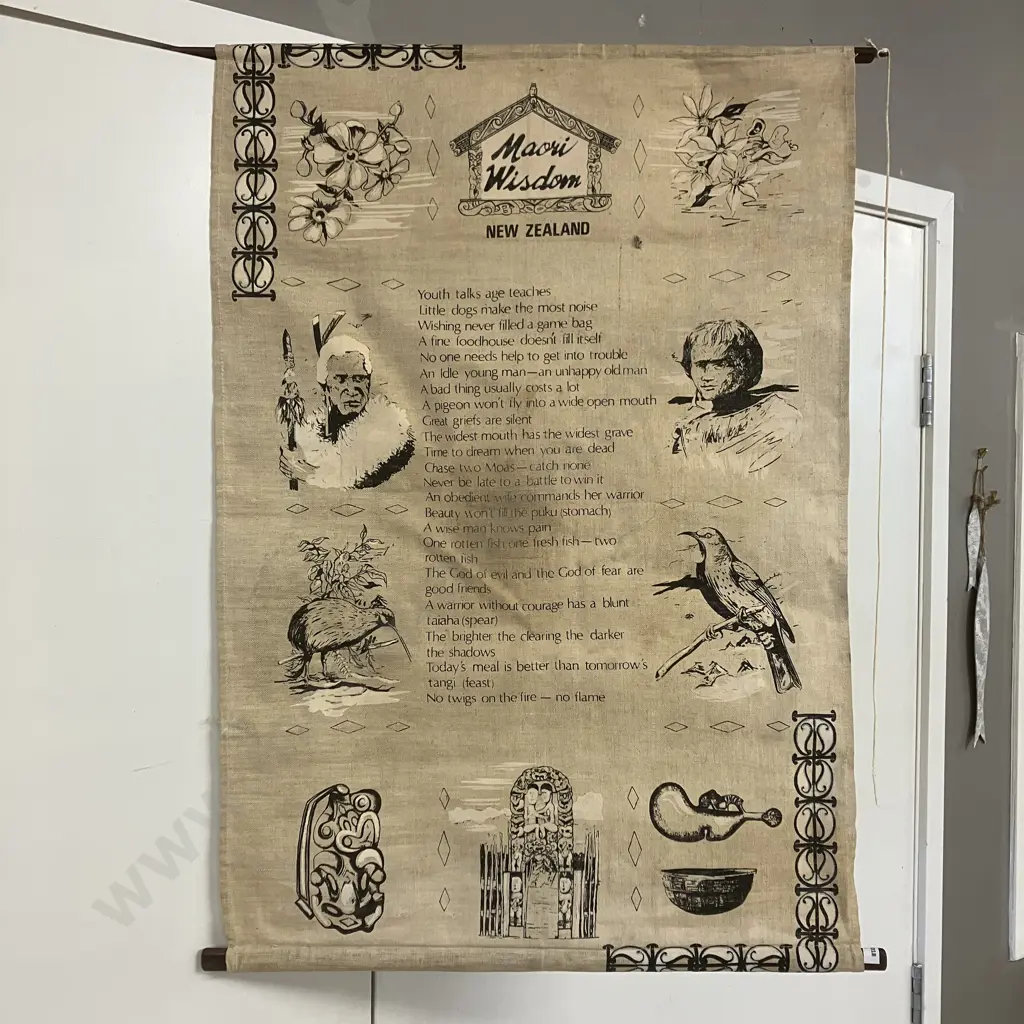 Maori
Wisdom
NEW ZEALAND
Youth talks age teaches
Little dogs make the most noise
Wishing never filled a game bag
A fine foodhouse doesn't fill itself
No one needs help to get into trouble
An idle young man—an unhappy old man
A bad thing usually costs a lot
A pigeon won't fly into a wide open mouth
Great griefs are silent
The widest mouth has the widest grave
Time to dream when you are dead
Chase two Moas—catch none
Never be late to a battle to win it
An obedient wife commands her warrior
Beauty won't fill the puku (stomach)
A wise man knows pain
One rotten fish, one fresh fish—two
rotten fish
The God of evil and the God of fear are
good friends
A warrior without courage has a blunt
taiaha (spear)
The brighter the clearing the darker
the shadows
Today's meal is better than tomorrow's
tangi (feast)
No twigs on the fire — no flame
www.